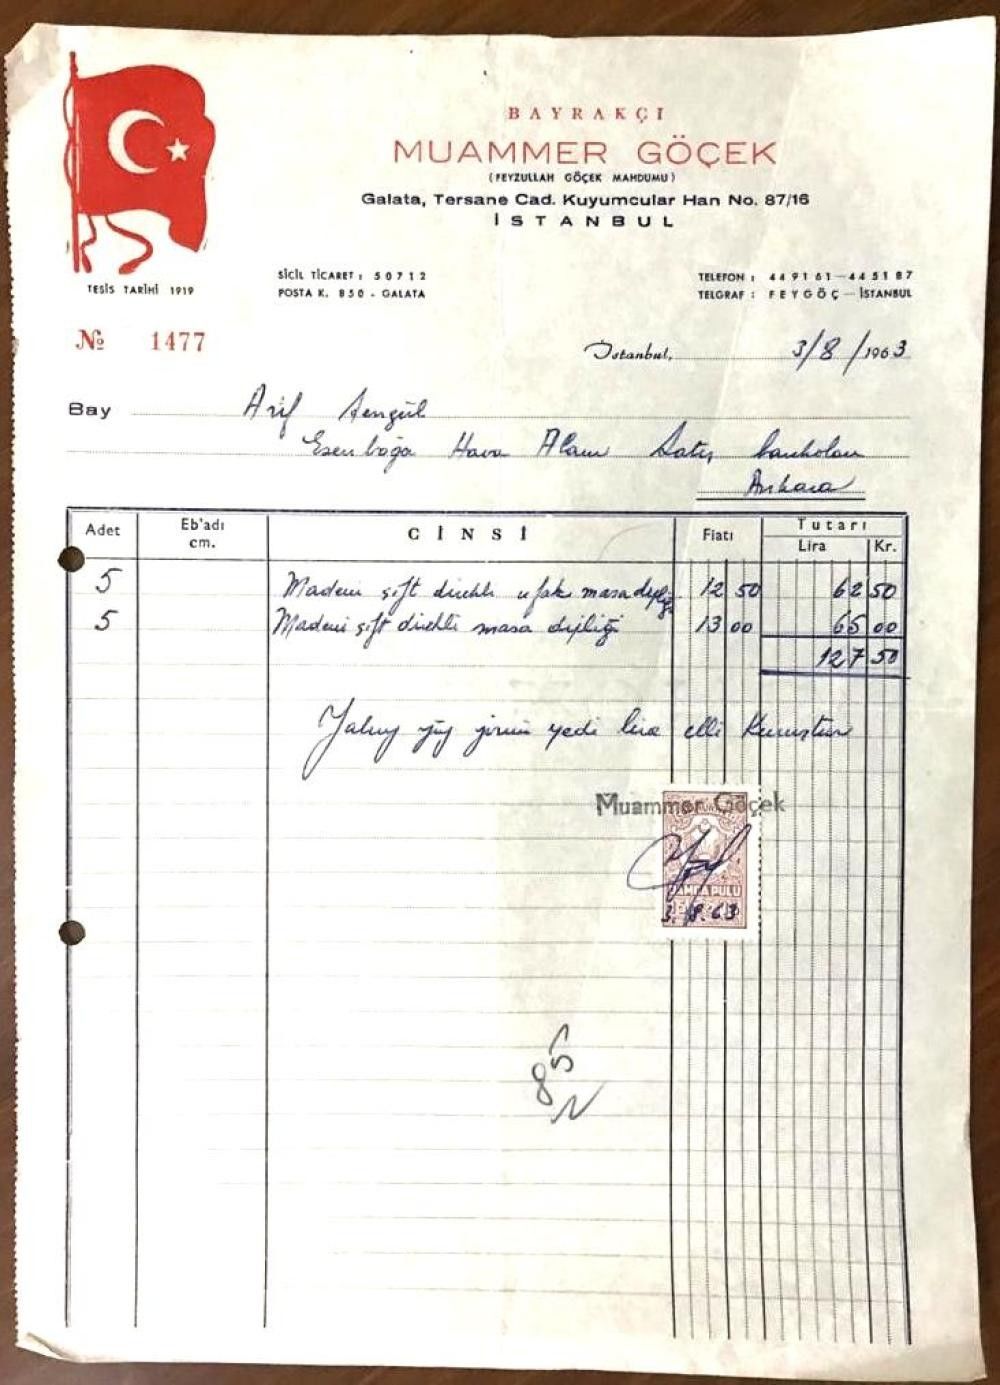 BAYRAKÇI
MUAMMER GÖÇEK
(FEYZULLAH GÖÇEK MAHDUMU)
Galata, Tersane Cad. Kuyumcular Han No. 87/16
İSTANBUL
TESİS TARİHİ 1919
SİCİL TİCARET : 50712
POSTA K. 850 - GALATA
TELEFON : 449161—445187
TELGRAF : FEYGÖÇ—İSTANBUL
№ 1477
İstanbul, 3/8/1963
Bay Arif Şengül
Esenboğa Hava Alanı Satış bankoları
Ankara
Adet Eb'adı cm. CİNSİ Fiatı Tutarı Lira Kr.
5 Madeni çift direkli ufak masa 12 50 62 50
5 Madeni çift direkli masa 13 00 65 00
127 50
Yalnız yüz yirmi yedi lira elli Kuruştur
Muammer Göçek
DAMGA PULU
3.8.63
85